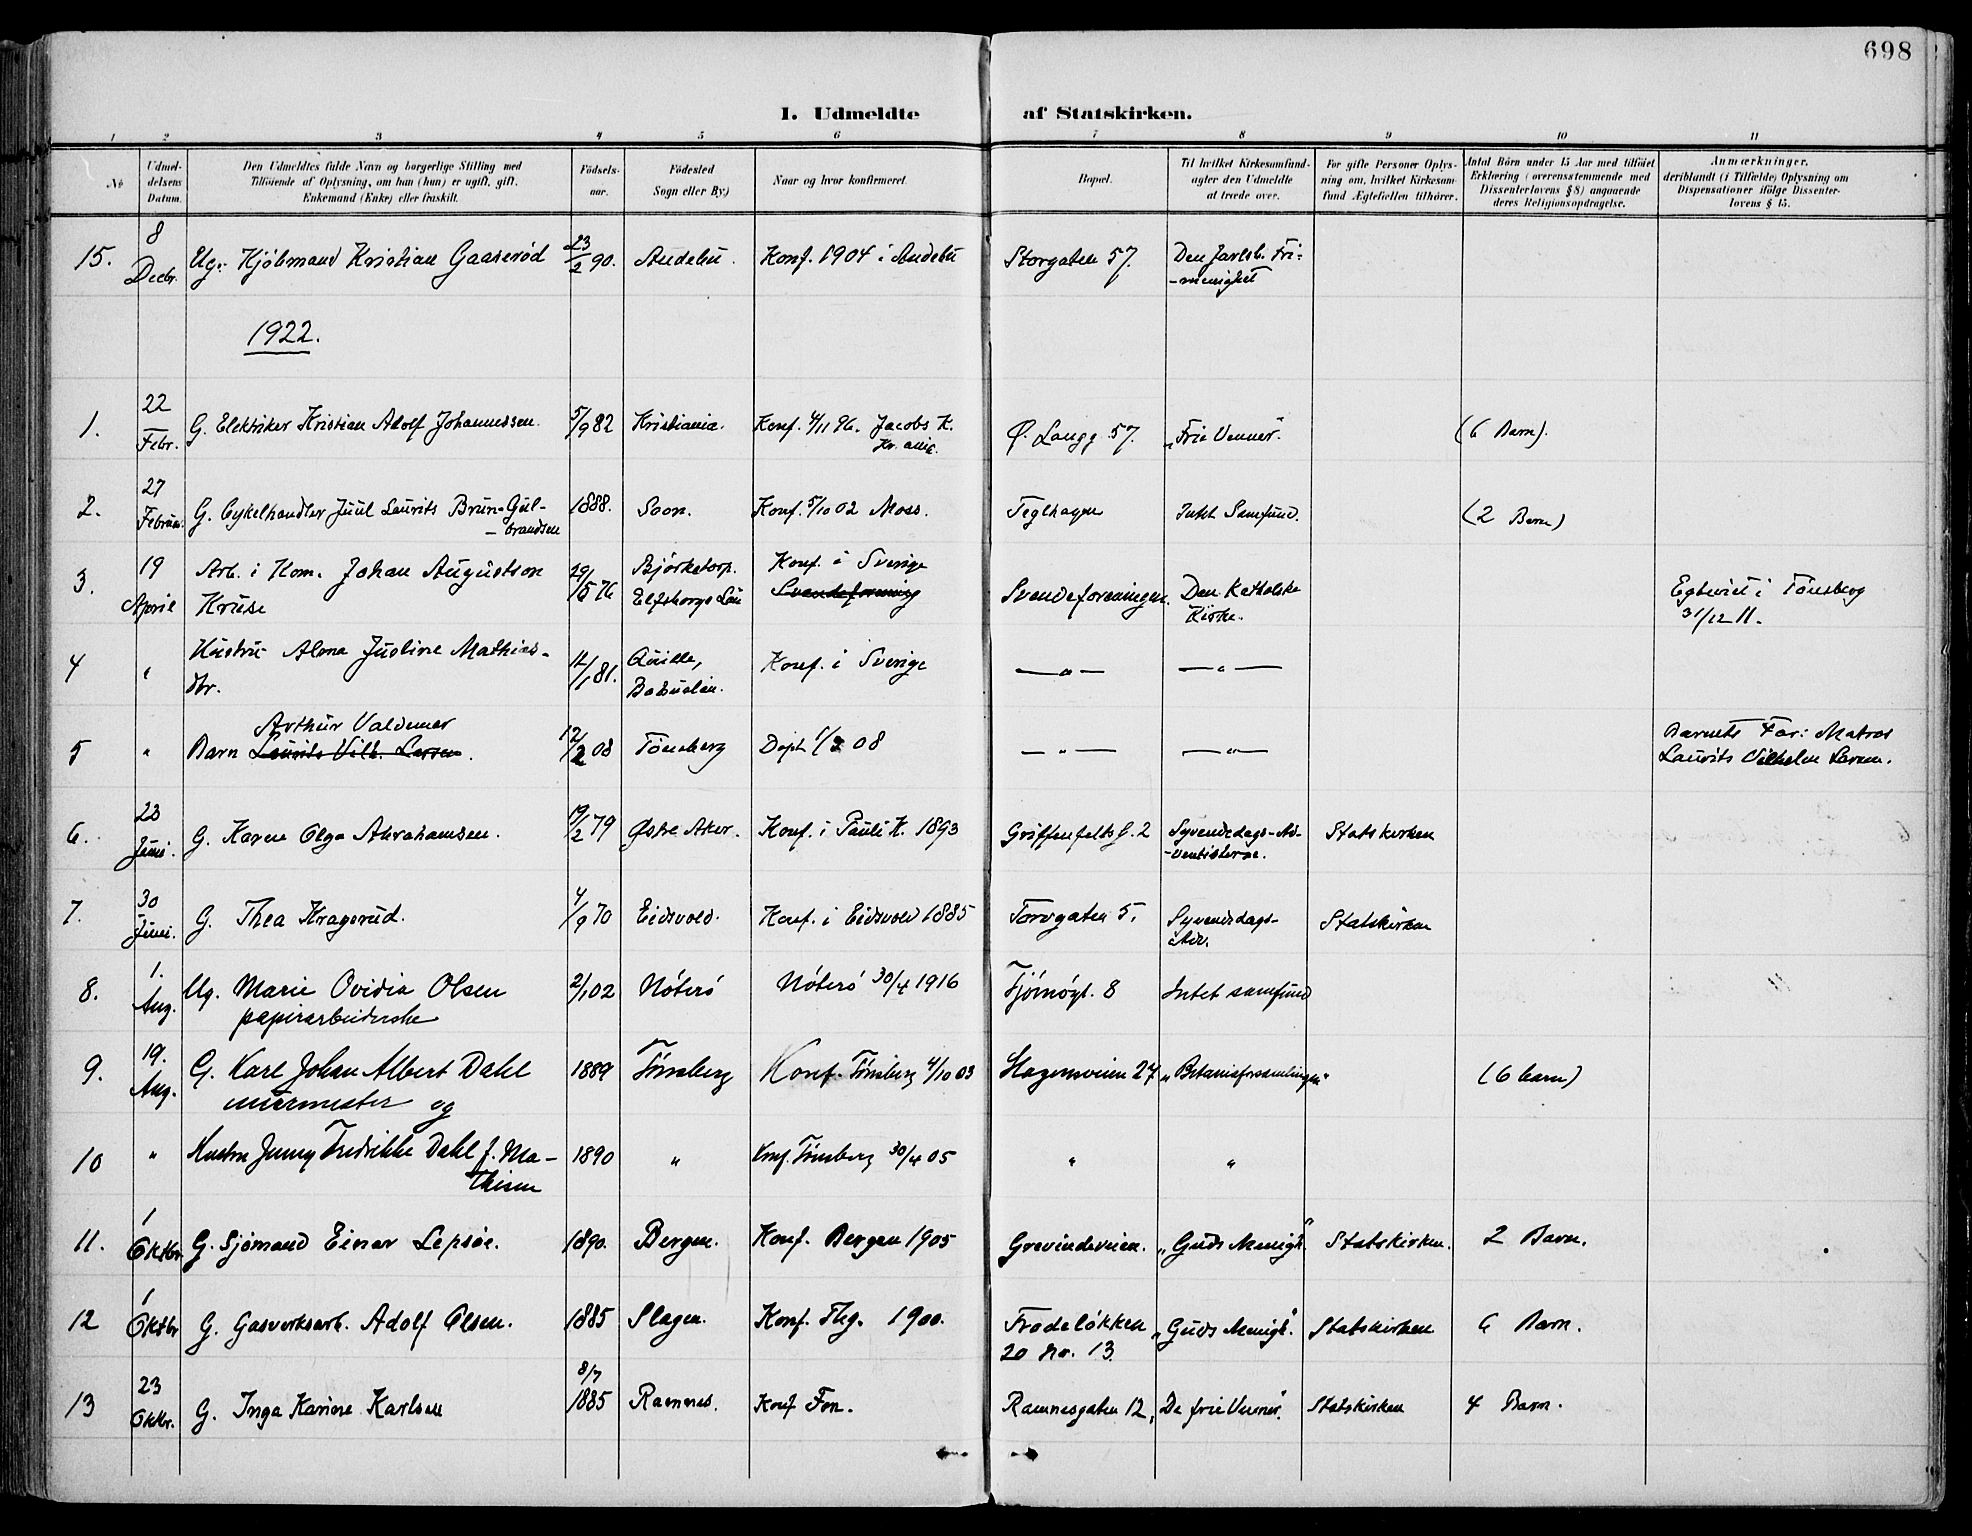 698
I. Udmeldte af Statskirken.
1 2 3 4 5 6 7 8 9 10 11
No
Udmel-
delsens
Datum.
Den Udmeldtes fulde Navn og borgerlige Stilling med
Tilföiende af Oplysning, om han (hun) er ugift, gift,
Enkemand (Enke) eller fraskilt.
Födsels-
aar.
Födested
Sogn eller By)
Naar og hvor konfirmeret.
Bopæl.
Til hvilket Kirkesamfund-
agter den Udmeldte
at træde over.
For gifte Personer Oplys-
ning om, hvilket Kirkesam-
fund Ægtefællen tilhörer.
Antal Börn under 15 Aar med tilföiet
Erklæring (overensstemmende med
Dissenterlovens § 8) angaaende
deres Religionsopdragelse.
Anmærkninger,
deriblandt (i Tilfælde) Oplysning om
Dispensationer ifölge Dissenter-
lovens § 15.
15. 8 Decbr. Ug. Kjöbmand Kristian Gaaseröd 23/2 90. Andebu. Konf. 1904 i Andebu Storgaten 57. Den Jarlsb. Fri-
-menighet
1922.
1. 22 Febr. G. Elektriker Kristian Adolf Johannessen. 5/9 82 Kristiania. Konf. 4/11 96. Jacobs K.
Kr.ania. Ø. Langg. 57. "Frie Venner". (6 Barn).
2. 27 Februar. G. Cykelhandler Juul Laurits Brun-Gul-
-brandsen 1888. Soon. Konf. 5/10 02 Moss. Teglhagen Intet Samfund. (2 Barn)
3. 19 April Arb. i Kom. Johan Augustson
Kruse 29/5 76 Björketorp.
Elfsborgs Län Konf. i Sverige
Svendeforening Svendeforeningen. Den Katholske
Kirke. Egteviet i Tönsberg
31/12 11.
4 " Hustru Alma Justine Mathias-
dtr. 12/1 81. Quille,
Bohuslän. Konf. i Sverige — " — — " —
5 " Arthur Valdemar
Barn Laurits Vilh. Larsen. 12/2 08 Tönsberg Döpt 1/3 08 — " — — " — Barnets Far: Matros
Laurits Vilhelm Larsen.
6. 23 Juni. G. Karen Olga Abrahamsen. 19/2 79 Østre Aker. Konf. i Pauli K. 1893 Griffenfelts G. 2 Syvendedags-Ad-
-ventisterne. Statskirken
7. 30 Juni. G. Thea Kragerud. 4/9 70 Eidsvold. Konf. i Eidsvold 1885 Torvgaten 5. Syvendedags-
Adv. Statskirken
8. 1. Aug. Ug. Marie Ovidia Olsen
papirarbeiderske 2/1 02 Nöterö Nöterö 30/4 1916 Tjömögt. 8 Intet samfund
9. 19. Aug. G. Karl Johan Albert Dahl
murmester og 1889 Tönsberg Konf. Tönsberg 4/10 03 Slagensveien 27 "Betaniaforsamlingen" (6 barn)
10 " Hustru Jenny Fredrikke Dahl f. Ma-
thisen 1890 " Konf. Tönsberg 30/4 05 " "
11. 1 Oktbr. G. Sjömand Einar Lepsöe. 1890. Bergen. Konf. Bergen 1905 Grevindeveien. "Guds Menigh." Statskirken. 2 Barn.
12 1 Oktbr G. Gasverksarb. Adolf Olsen. 1885 Slagen. Konf. Tbg. 1900. Frodeløkken
20 Nr. 13. "Guds Menigh." Statskirken 6 Barn.
13 23 Oktbr. G. Inga Karine Karlsen 8/7
1885 Ramnes. Konf Fon. Ramnesgaten 12, "De frie Venner". Statskirken 4 Barn.